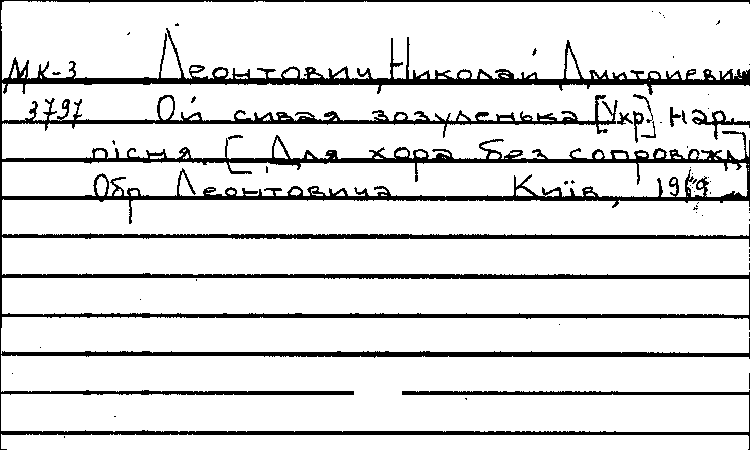 МК-3 Леонтович, Николай Дмитриевич
3797 Ой сивая зозуленька [Укр.] нар.
пісня. [Для хора без сопровожд.]
Обр. Леонтовича Київ,